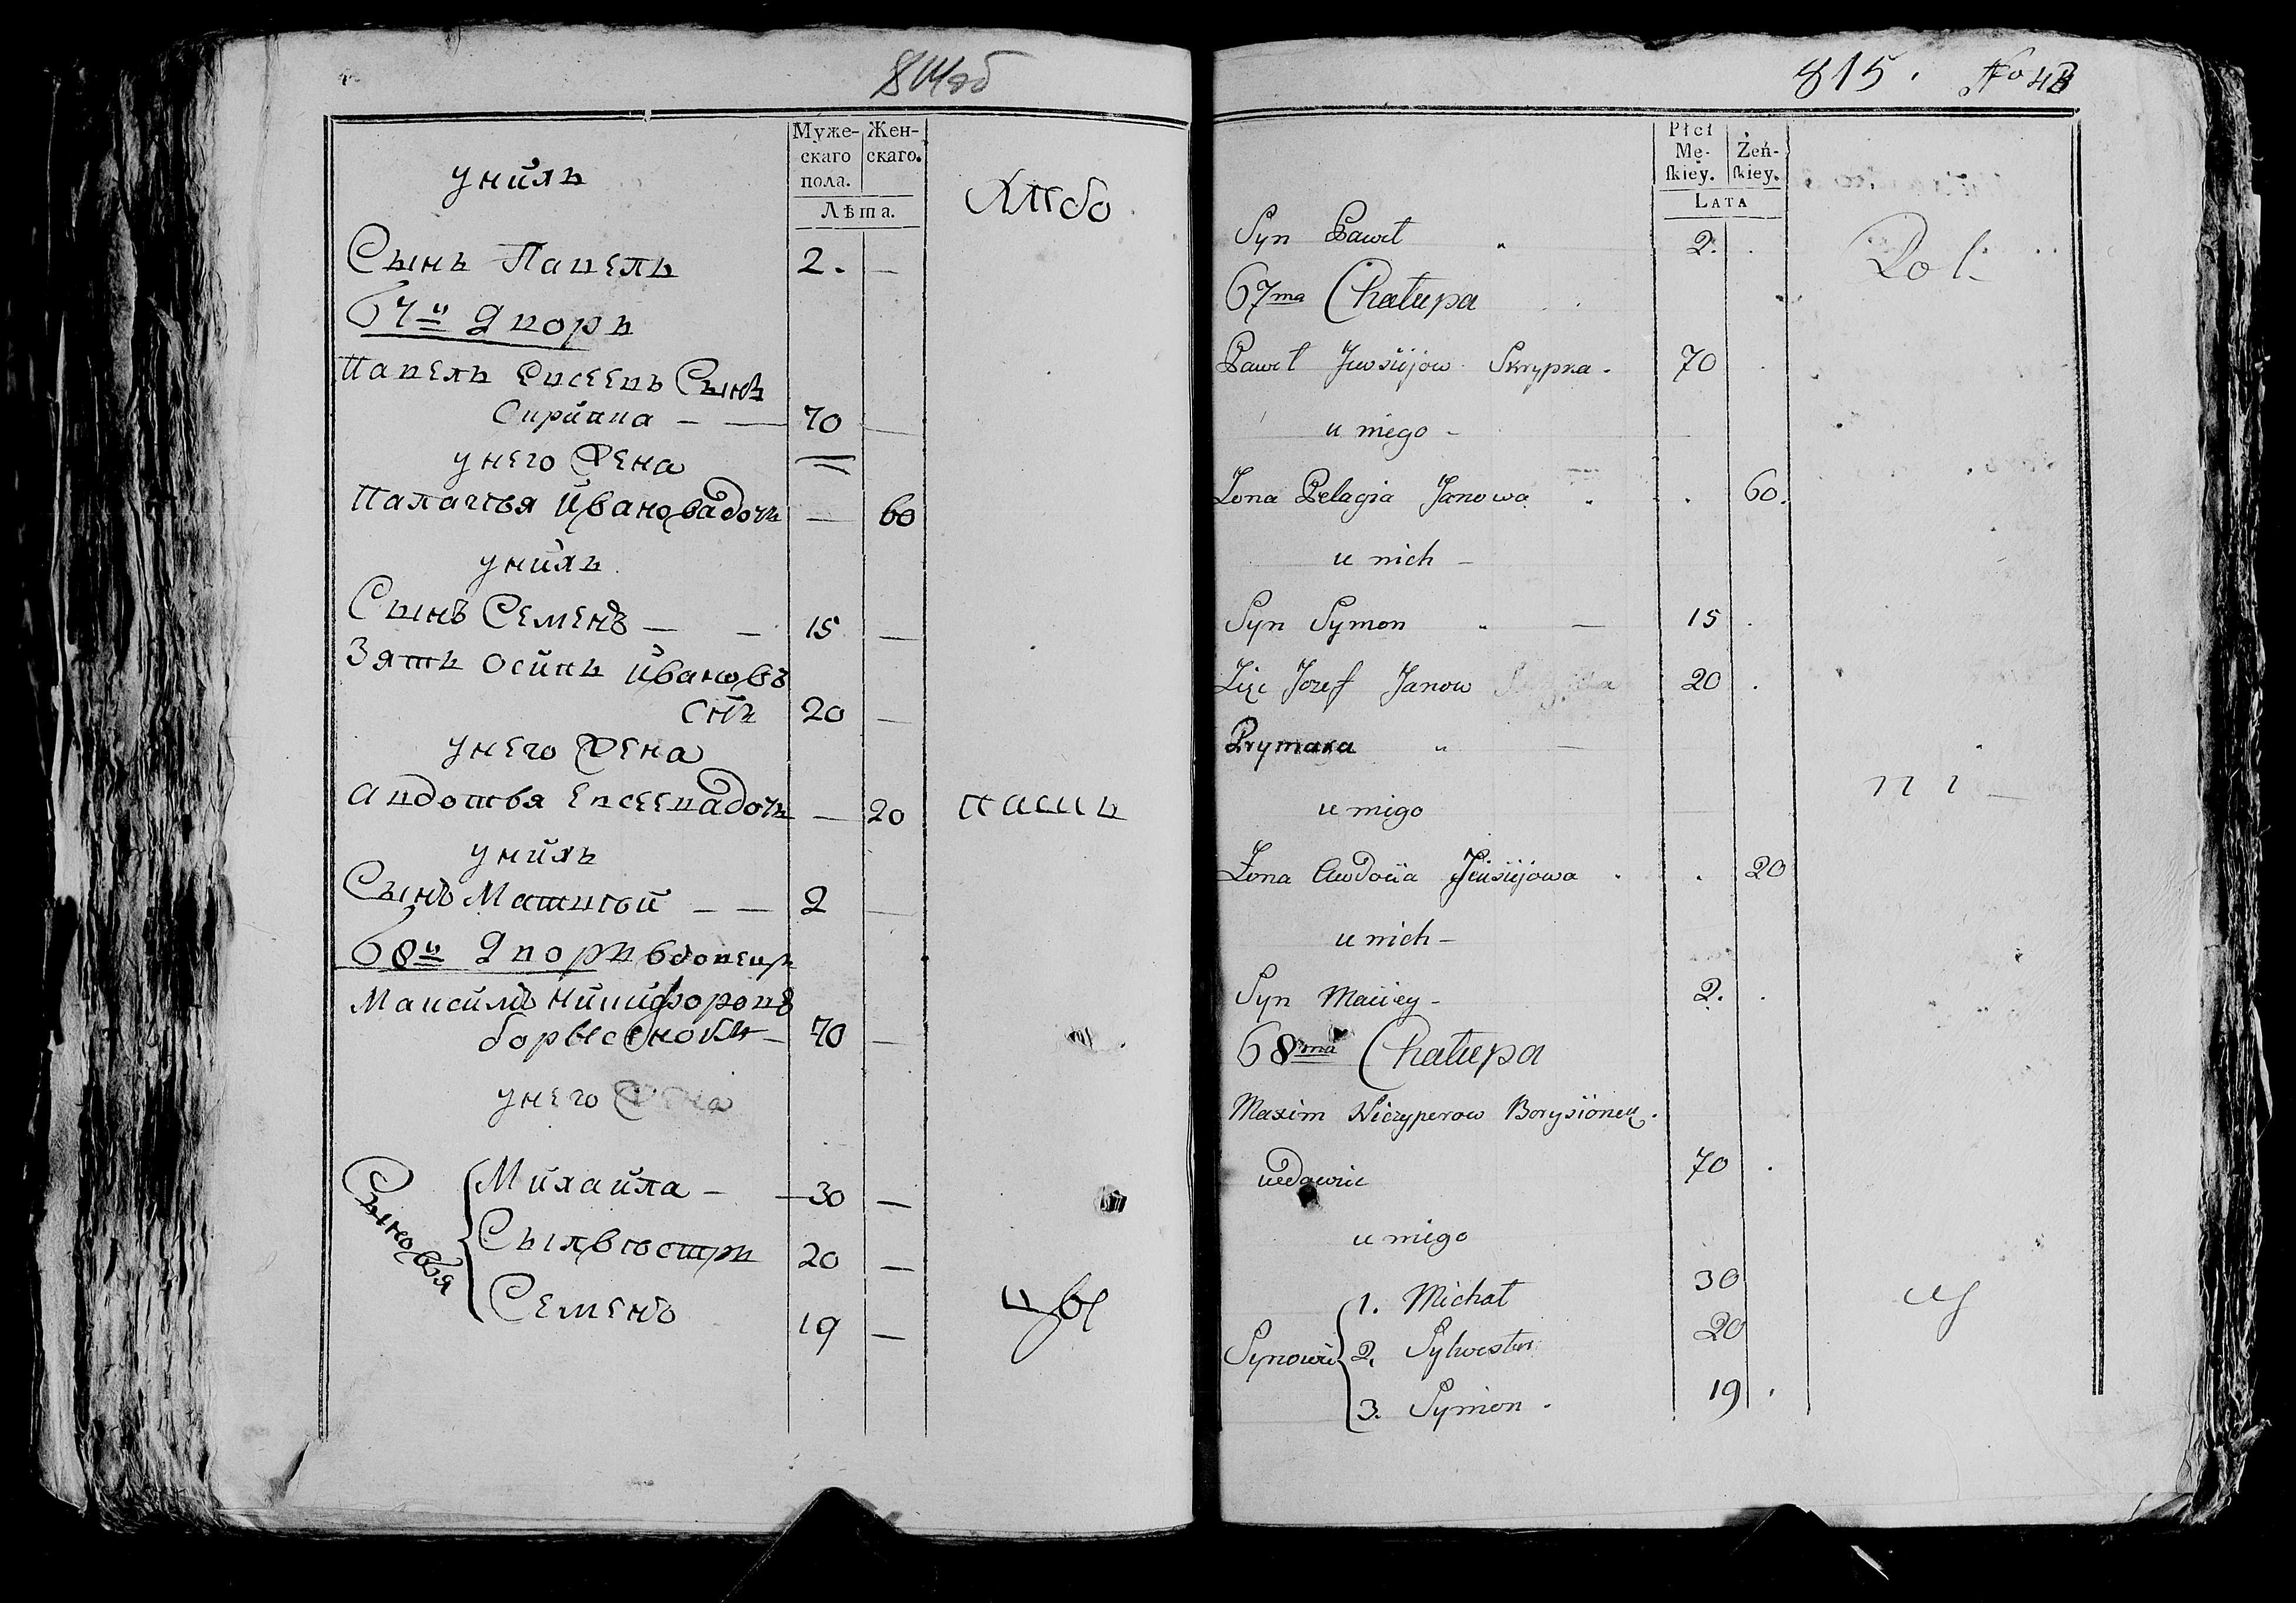 814 об
Муже-
скаго
пола.
Жен-
скаго.
Лѣта.
унихъ
Хлѣбо
Сынъ Павелъ 2. —
67й Дворъ
Павелъ Евсеевъ Сынъ
Скрипка — — 70 —
унего Жена
Палагѣя Ивановадочъ — 60
унихъ
Сынъ Семенъ — — 15 —
Зять Осипъ Ивановъ
Снъ 20 —
унего Жена
Авдотья Евсеевадочъ — 20
пашц
унихъ
Сынъ Матвѣй — — 2 —
68й Дворъ вдовецъ
Максимъ Никифоровъ
борысѣнокъ — 70 —
унего Жена
Сыновья
Михайла — — 30 —
Сылвѣстръ 20 —
Семенъ 19 —
цы
815. No 43
Płci
Mę-
ſkiey.
Żeń-
ſkiey.
LATA
Syn Paweł 2.
Rol-
67ma Chałupa
Paweł Jwsiijow Skrypka. 70
u niego -
Zona Pelagia Janowa 60.
u nich -
Syn Symon — 15
Zięc Jozef Janow 20
Prymaka —
ni —
u niego
Zona Awdocia Jiwsiijowa 20
u nich -
Syn Maciey - 2.
68ma Chałupa
Maxim Niczyperow Borysionek.
wdowiec 70
u niego
Synowie
1. Michał 30
2. Sylwester 20
3. Symon. 19
cy